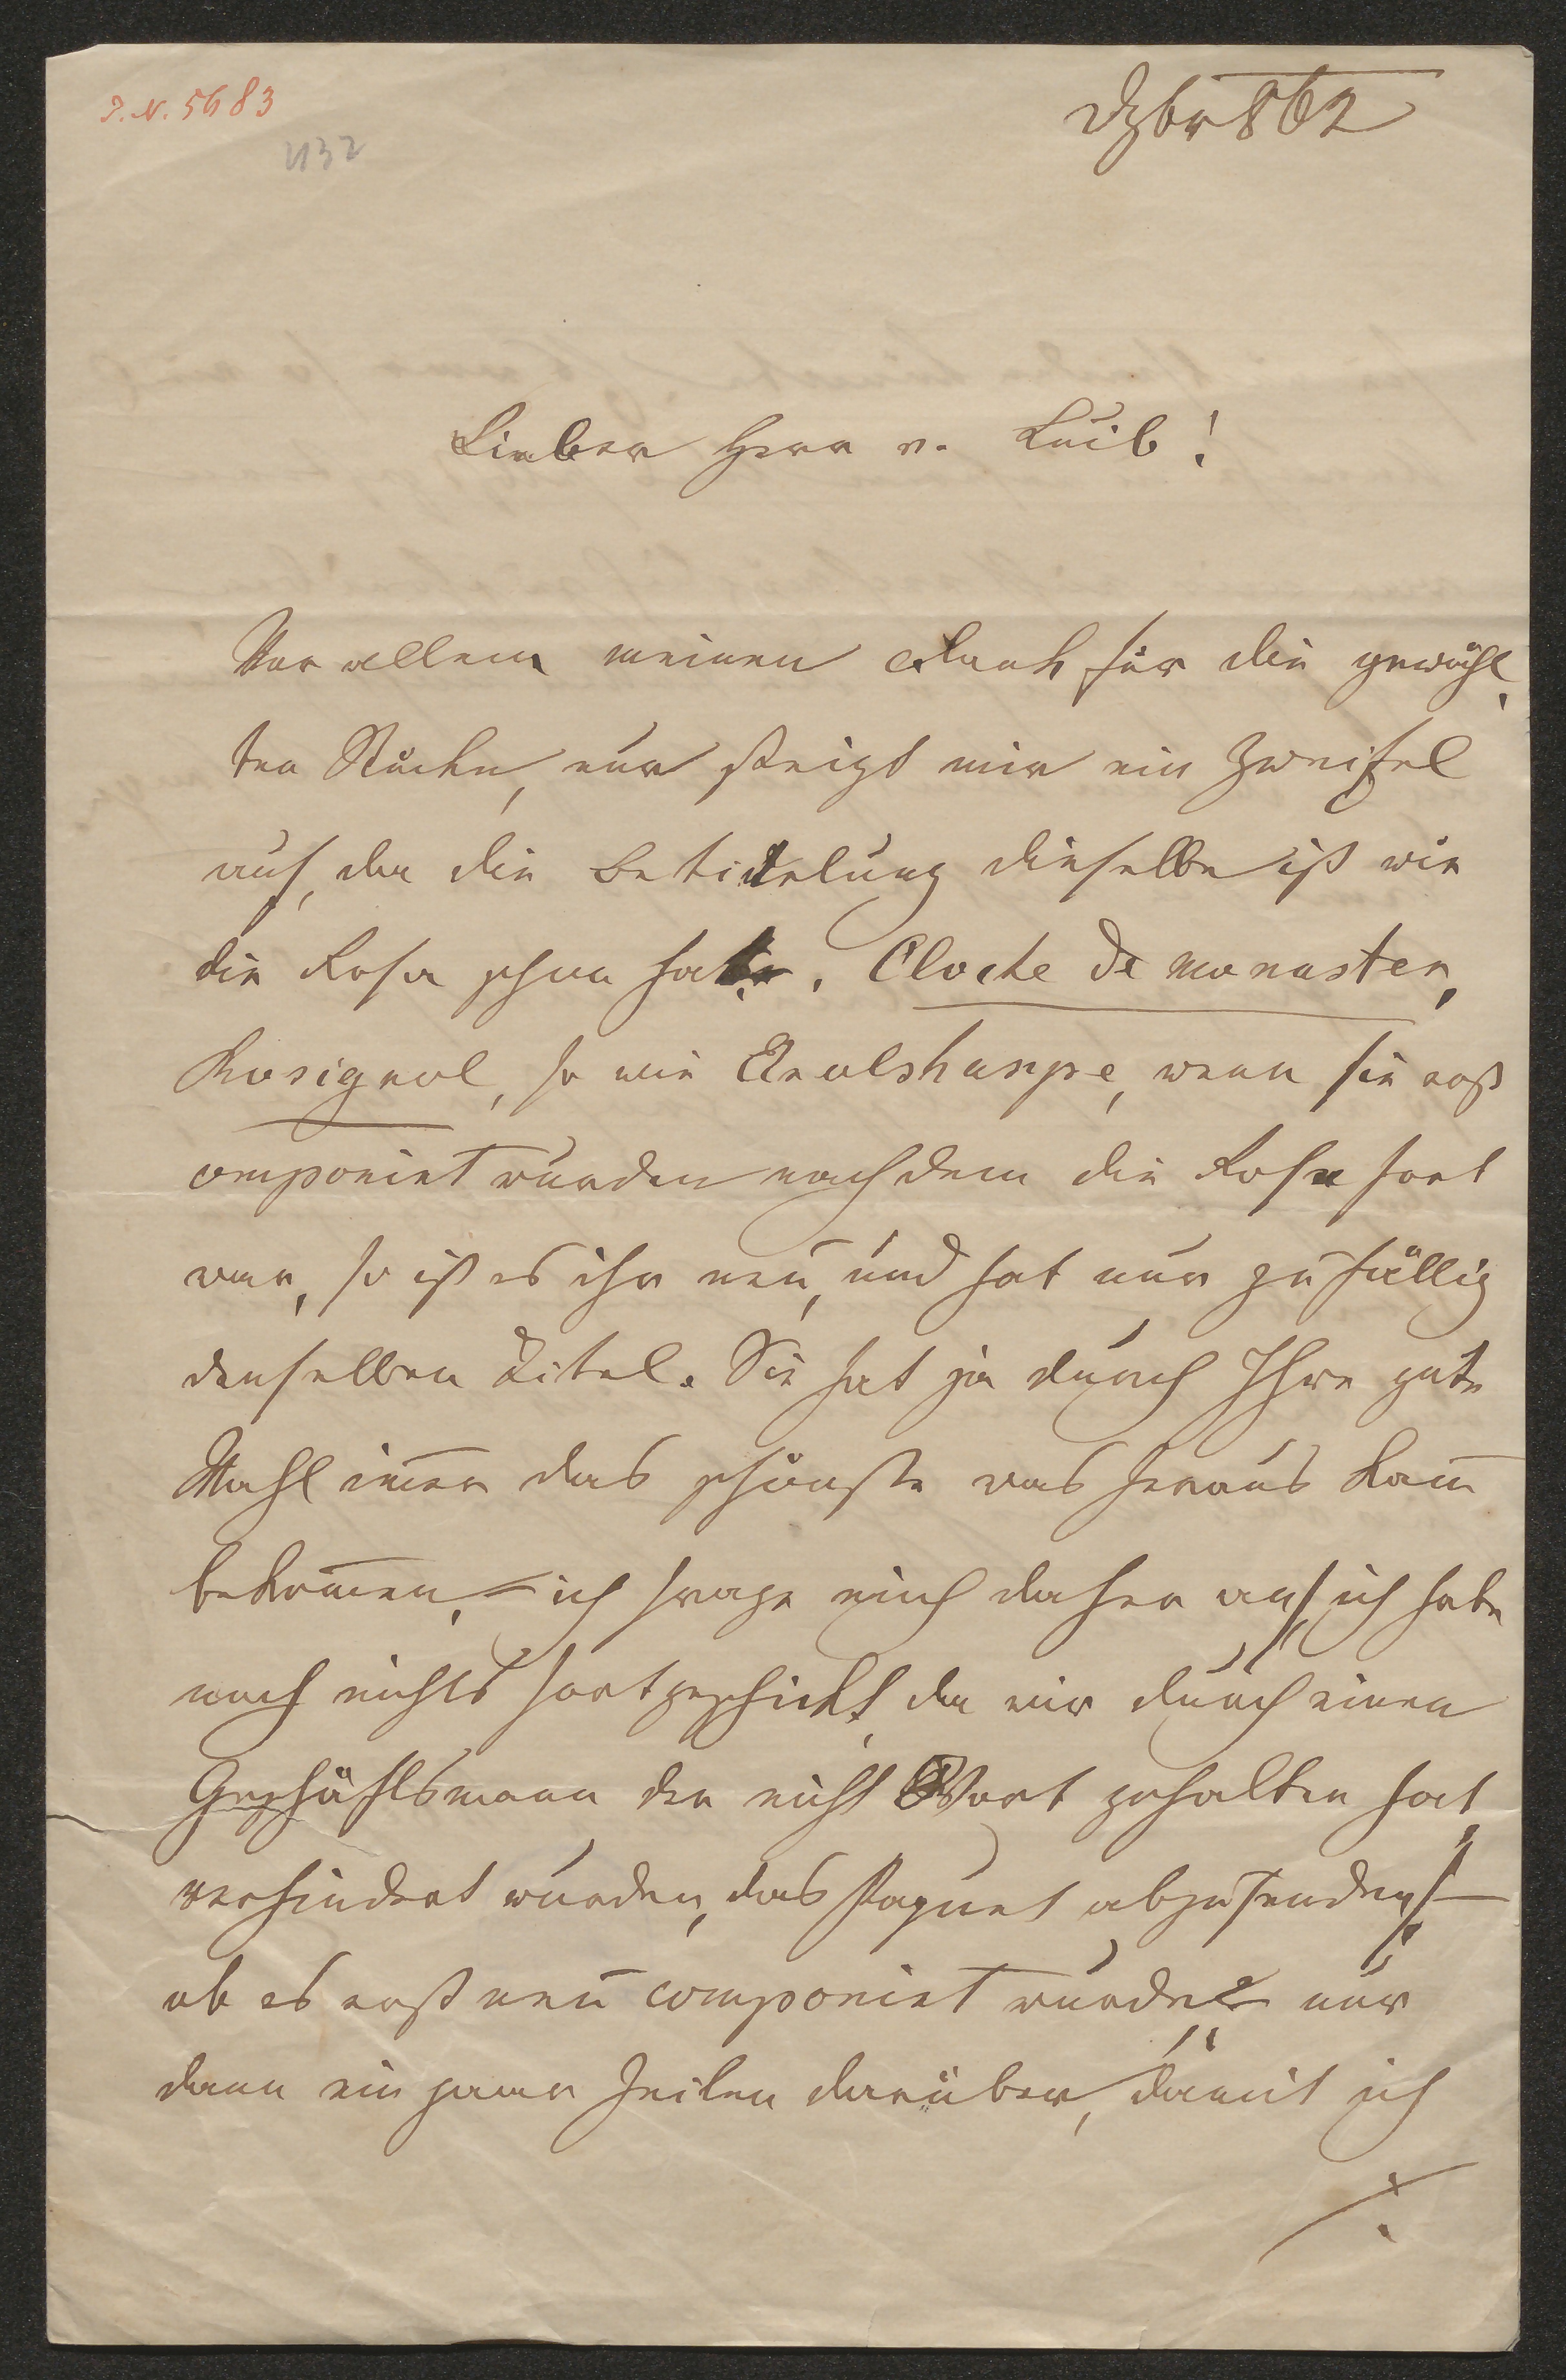 I. N. 5683
1132
Dzbr 862
Lieber Herr v. Luib!
Vor allem meinen Dank für die gewähl
ten Stücke, nur steigt mir ein Zweifel
auf, da die Betitelung dieselbe ist wie
die Rosa schon hatte. Cloche de monaster,
Rosignol, so wie Aeolsharpe, wenn sie erst
componirt wurden nachdem die Rosa fort
war, so ist es ihr neu, und hat nur zufällig
denselben Titel. Sie hat ja durch Ihre gute
Wahl im̅er das schönste was heraus kam̅
bekom̅en, – ich frage mich daher an, ich habe
noch nichts fortgeschickt, da wir durch einen
Geschäftsmann der nicht Wort gehalten hat,
verhindert wurden, das Paquet abzusenden, –
ob es erst neu componirt wurde, nur
dann ein paar Zeilen darüber, damit ich
./.